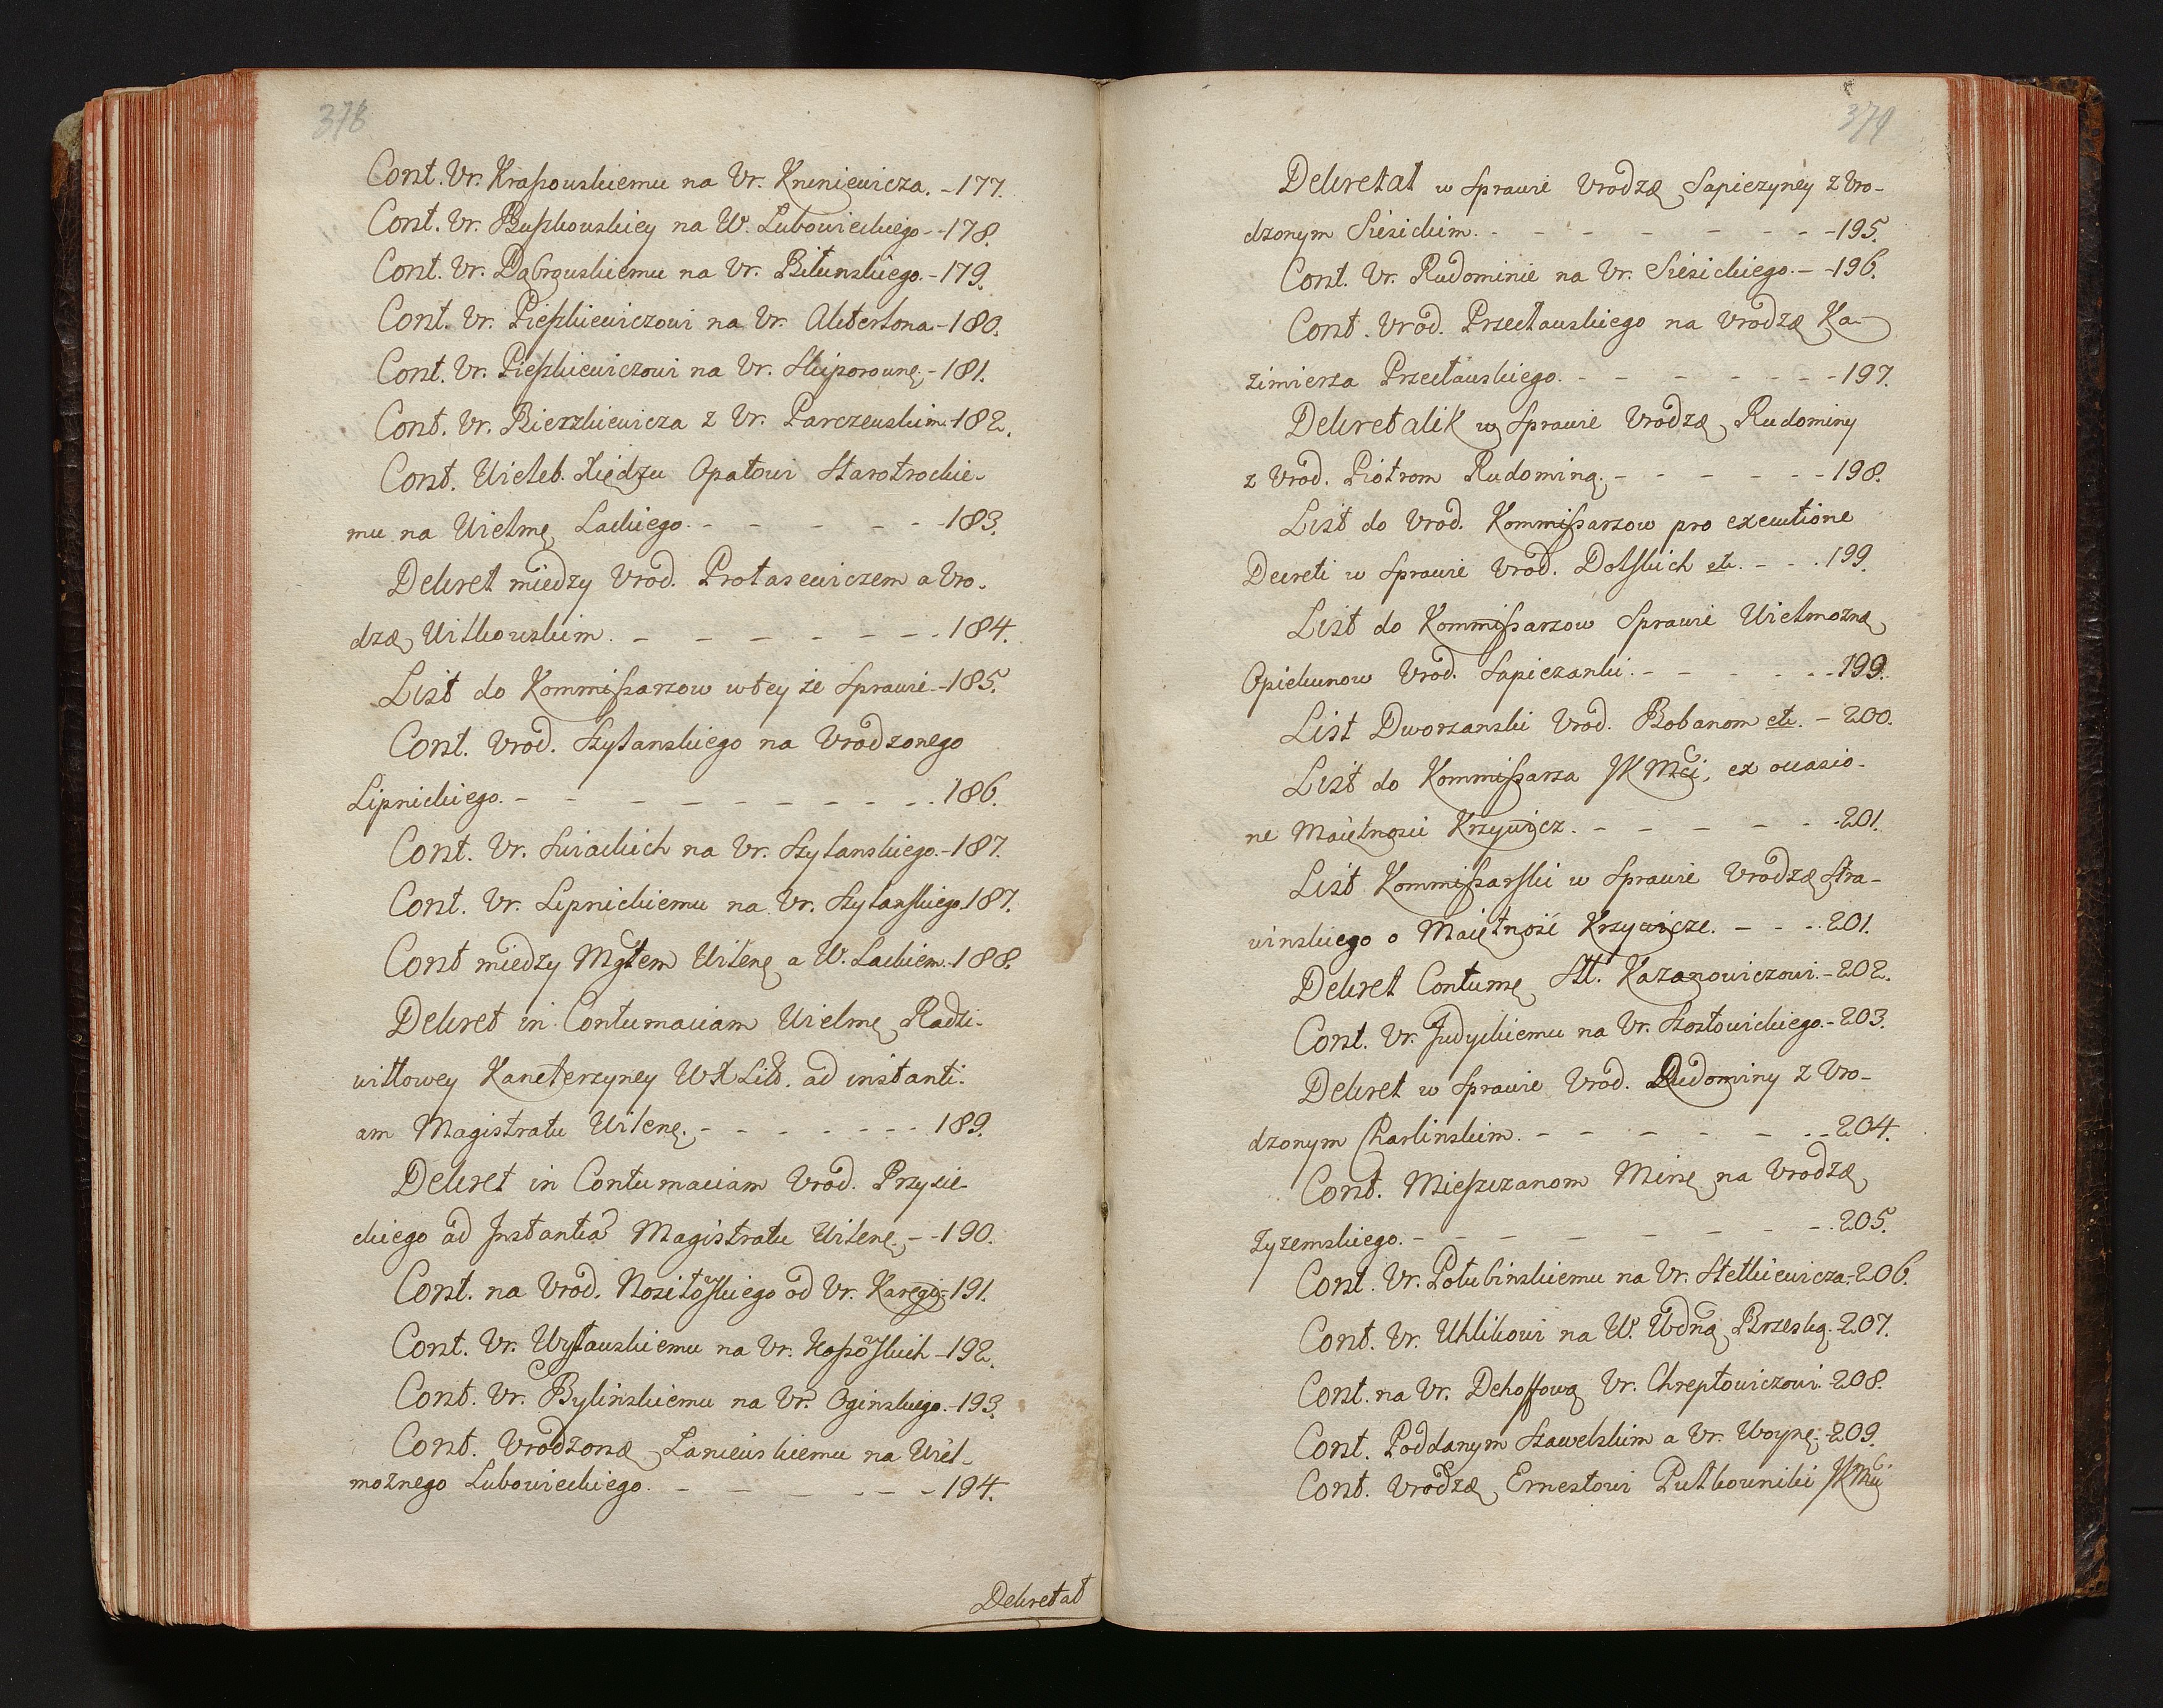 378
Cont. Vr. Kraszowskiemu na Vr. Kniniewicza. - 177.
Cont. Vr. Buszkowskiey na W. Lubowieckiego - - 178.
Cont. Vr. Dąbrowskiemu na Vr. Bitunskiego. - 179.
Cont. Vr. Pieszkiewiczowi na Vr. Akterlona - 180.
Cont. Vr. Pieszkiewiczowi na Vr. Skiporownę - 181.
Cont. Vr. Bierzkiewicza z Vr. Parczewskim 182.
Cont. Wieleb. Xiędzu Opatowi Starotrockie-
mu na Wielmę Lackiego. - - - - - - 183.
Dekret między Vrod. Protasewiczem a Vro-
dzę Witkowskim. - - - - - - - 184.
List do Kommissarzow wtey że Sprawie - 185.
Cont. Vrod. Szytanskiego na Vrodzonego
Lipnickiego. - - - - - - - - - 186.
Cont. Vr. Swiackich na Vr. Szytanskiego. - 187.
Cont. Vr. Lipnickiemu na Vr. Szytanskiego 187.
Cont między Mgtem Wilenę a W. Lackiem. 188.
Dekret in Contumaciam Wielmę Radzi-
wiłłowey Kanclerzyney WXLitt. ad instanti-
am Magistratu Wilenę. - - - - - - - 189.
Dekret in Contumaciam Vrod. Przysie-
ckiego ad Instantia Magistratu Wilenę - - 190.
Cont. na Vrod. Nositoskiego od Vr. Karęgi - 191.
Cont. Vr. Wysławskiemu na Vr. Koposskich - 192.
Cont. Vr. Bylinskiemu na Vr. Oginskiego. - 193.
Cont. Vrodzonę Laniewskiemu na Wiel-
możnego Lubowieckiego. - - - - - - 194.
Dekretał
379
Dekretał w Sprawie Vrodzę Sapieżyney z Vro-
dzonym Siesickim. - - - - - - - - 195.
Cont. Vr. Rudominie na Vr. Siesickiego. - - 196.
Cont. Vrod. Przecławskiego na Vrodzę Ka-
zimierza Przecławskiego. - - - - - - - 197.
Dekretalik w Sprawie Vrodzę Rudominy
z Vrod. Piotrom Rudominą. - - - - - - 198.
List do Vrod. Kommissarzow pro executione
Decreti w Sprawie Vrod. Dolskich etc. - - - 199.
List do Kommissarzow Sprawie Wielmożnę
Opiekunow Vrod. Sapieżanki. - - - - - - 199.
List Dworzanski Vrod. Bobanom etc. - 200.
List do Kommissarza JKMci, ex occasio-
ne Maiętnosci Krzywicz. - - - - - - 201.
List Kommissarski w Sprawie Vrodzę Stra-
winskiego o Maiętność Krzywicze. - - - 201.
Dekret Contumę Szl. Kazanowiczowi. - 202.
Cont. Vr. Judyckiemu na Vr. Szostowickiego. - 203.
Dekret w Sprawie Vrod. Rudominy z Vro-
dzonym Charlinskim. - - - - - - - 204.
Cont. Mieszczanom Minę na Vrodzę
Zyzemskiego. - - - - - - - - 205.
Cont. Vr. Połubinskiemu na Vr. Stetkiewicza. 206.
Cont. Vr. Uhlikowi na W. Wdną Brzeską. 207.
Cont. na Vr. Dehoffową Vr. Chreptowiczowi. 208.
Cont. Poddanym Szawelskim a Vr. Woynę. - 209.
Cont. Vrodzę Ernestowi Pułkowniki JKMci